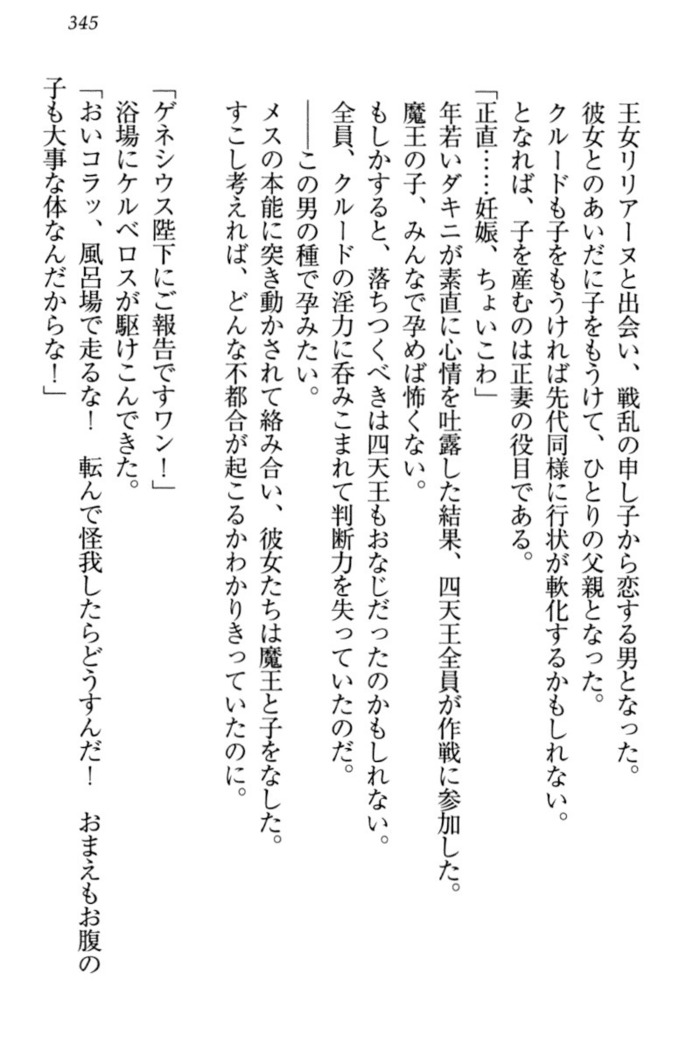 345
王女リリアーヌと出会い、戦乱の申し子から恋する男となった。
彼女とのあいだに子をもうけて、ひとりの父親となった。
クルードも子をもうければ先代同様に行状が軟化するかもしれない。
となれば、子を産むのは正妻の役目である。
「正直……妊娠、ちょいこわ」
年若いダキニが素直に心情を吐露した結果、四天王全員が作戦に参加した。
魔王の子、みんなで孕めば怖くない。
もしかすると、落ちつくべきは四天王もおなじだったのかもしれない。
全員、クルードの淫力に呑みこまれて判断力を失っていたのだ。
――この男の種で孕みたい。
メスの本能に突き動かされて絡み合い、彼女たちは魔王と子をなした。
すこし考えれば、どんな不都合が起こるかわかりきっていたのに。
「ゲネシウス陛下にご報告ですワン！」
浴場にケルベロスが駆けこんできた。
「おいコラッ、風呂場で走るな！　転んで怪我したらどうすんだ！　おまえもお腹の
子も大事な体なんだからな！」